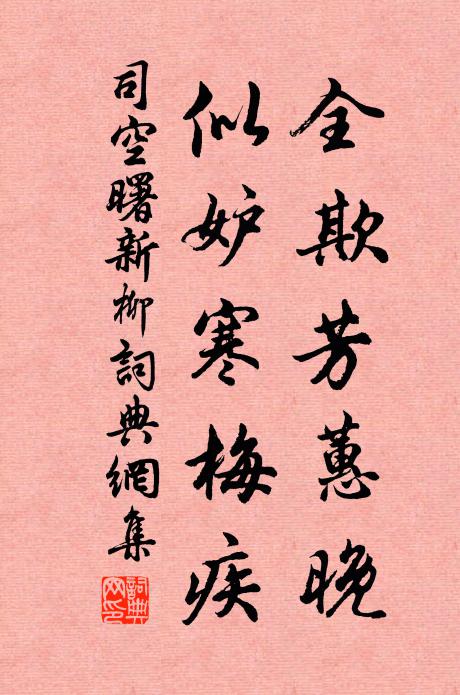 全欺芳蕙晚
似妒寒梅疾
司空曙新柳詞典網集
詞典网印